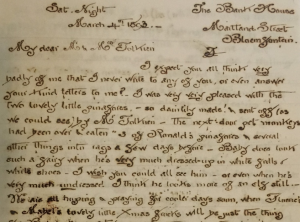 Sat. Night
The Bank House
March 4th
Maitland Street
Bloemfontein.
My dear Mr & Mrs Tolkien
I expect you all think very
badly of me that I never write to any of you, or even answer
your kind letters to me! I was very very pleased with the
two lovely little pinafores, so daintily made, & sent off (as
we could see) by Mr Tolkien - The next-door pet monkeys
had been over & eaten 3 of Ronald's pinafores & several
other things into rags a few days before - Baby does look
such a fairy when he's very much dressed-up in white frills &
white shoes - I wish you could all see him - or even when he's
very much undressed I think he looks more of an elf still -
We are all hoping & praying for cooler days soon, when
Mabel's lovely little Xmas will be just the thing